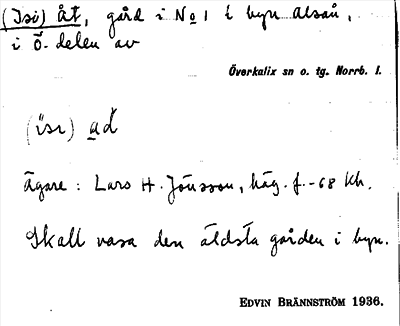 (Isi) åt, gård i No 1 i byn Alsån,
i ö. delen av
Överkalix sn o. tg. Norrb. l.
(isɩ) ad
Ägare: Lars H. Jönsson, häg. f. -68 Kh.
Skall vara den äldsta gården i byn.
EDVIN BRÄNNSTRÖM 1936.